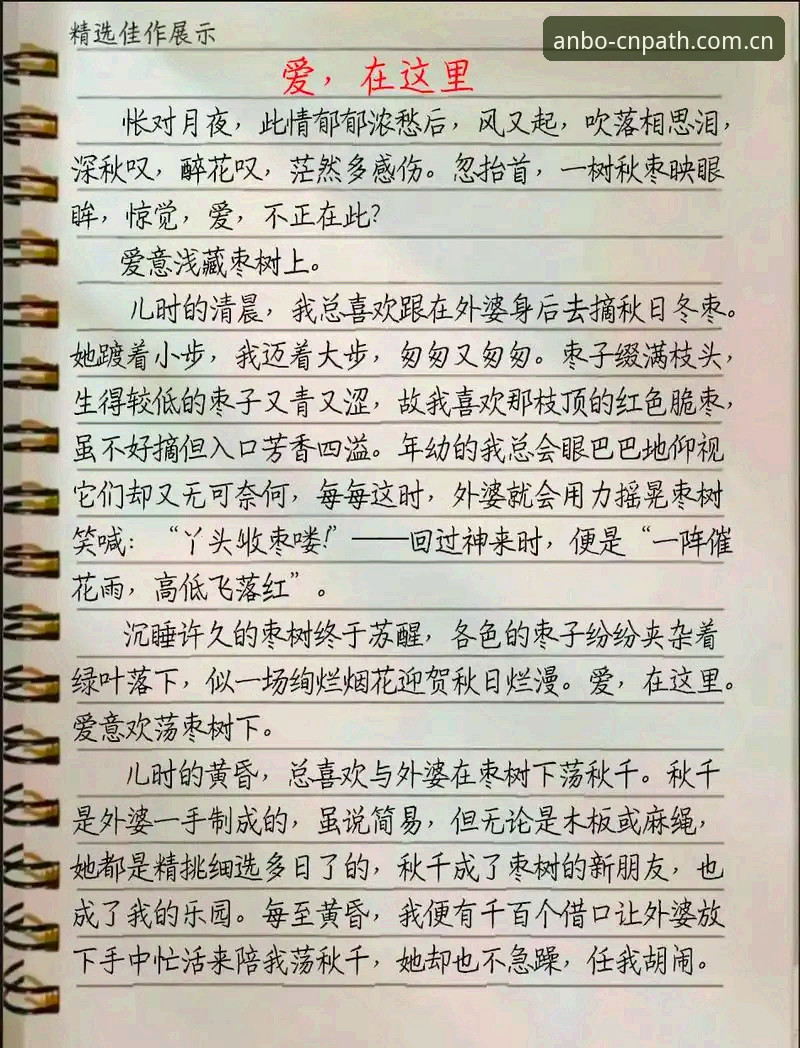 精选佳作展示
anbo-cnpath.com.cn
爱，在这里
怅对月夜，此情郁郁浓愁后，风又起，吹落相思泪，
深秋叹，醉花叹，茫然多感伤。忽抬首，一树秋枣映眼
眸，惊觉，爱，不正在此？
爱意浅藏枣树上。
儿时的清晨，我总喜欢跟在外婆身后去摘秋日冬枣。
她踱着小步，我迈着大步，匆匆又匆匆。枣子缀满枝头，
生得较低的枣子又青又涩，故我喜欢那枝顶的红色脆枣，
虽不好摘但入口芳香四溢。年幼的我总会眼巴巴地仰视
它们却又无可奈何，每每这时，外婆就会用力摇晃枣树
笑喊：“丫头收枣喽！”——回过神来时，便是“一阵催
花雨，高低飞落红”。
沉睡许久的枣树终于苏醒，各色的枣子纷纷夹杂着
绿叶落下，似一场绚烂烟花迎贺秋日烂漫。爱，在这里。
爱意欢荡枣树下。
儿时的黄昏，总喜欢与外婆在枣树下荡秋千。秋千
是外婆一手制成的，虽说简易，但无论是木板或麻绳，
她都是精挑细选多日了的，秋千成了枣树的新朋友，也
成了我的乐园。每至黄昏，我便有千百个借口让外婆放
下手中忙活来陪我荡秋千，她却也不急躁，任我胡闹。